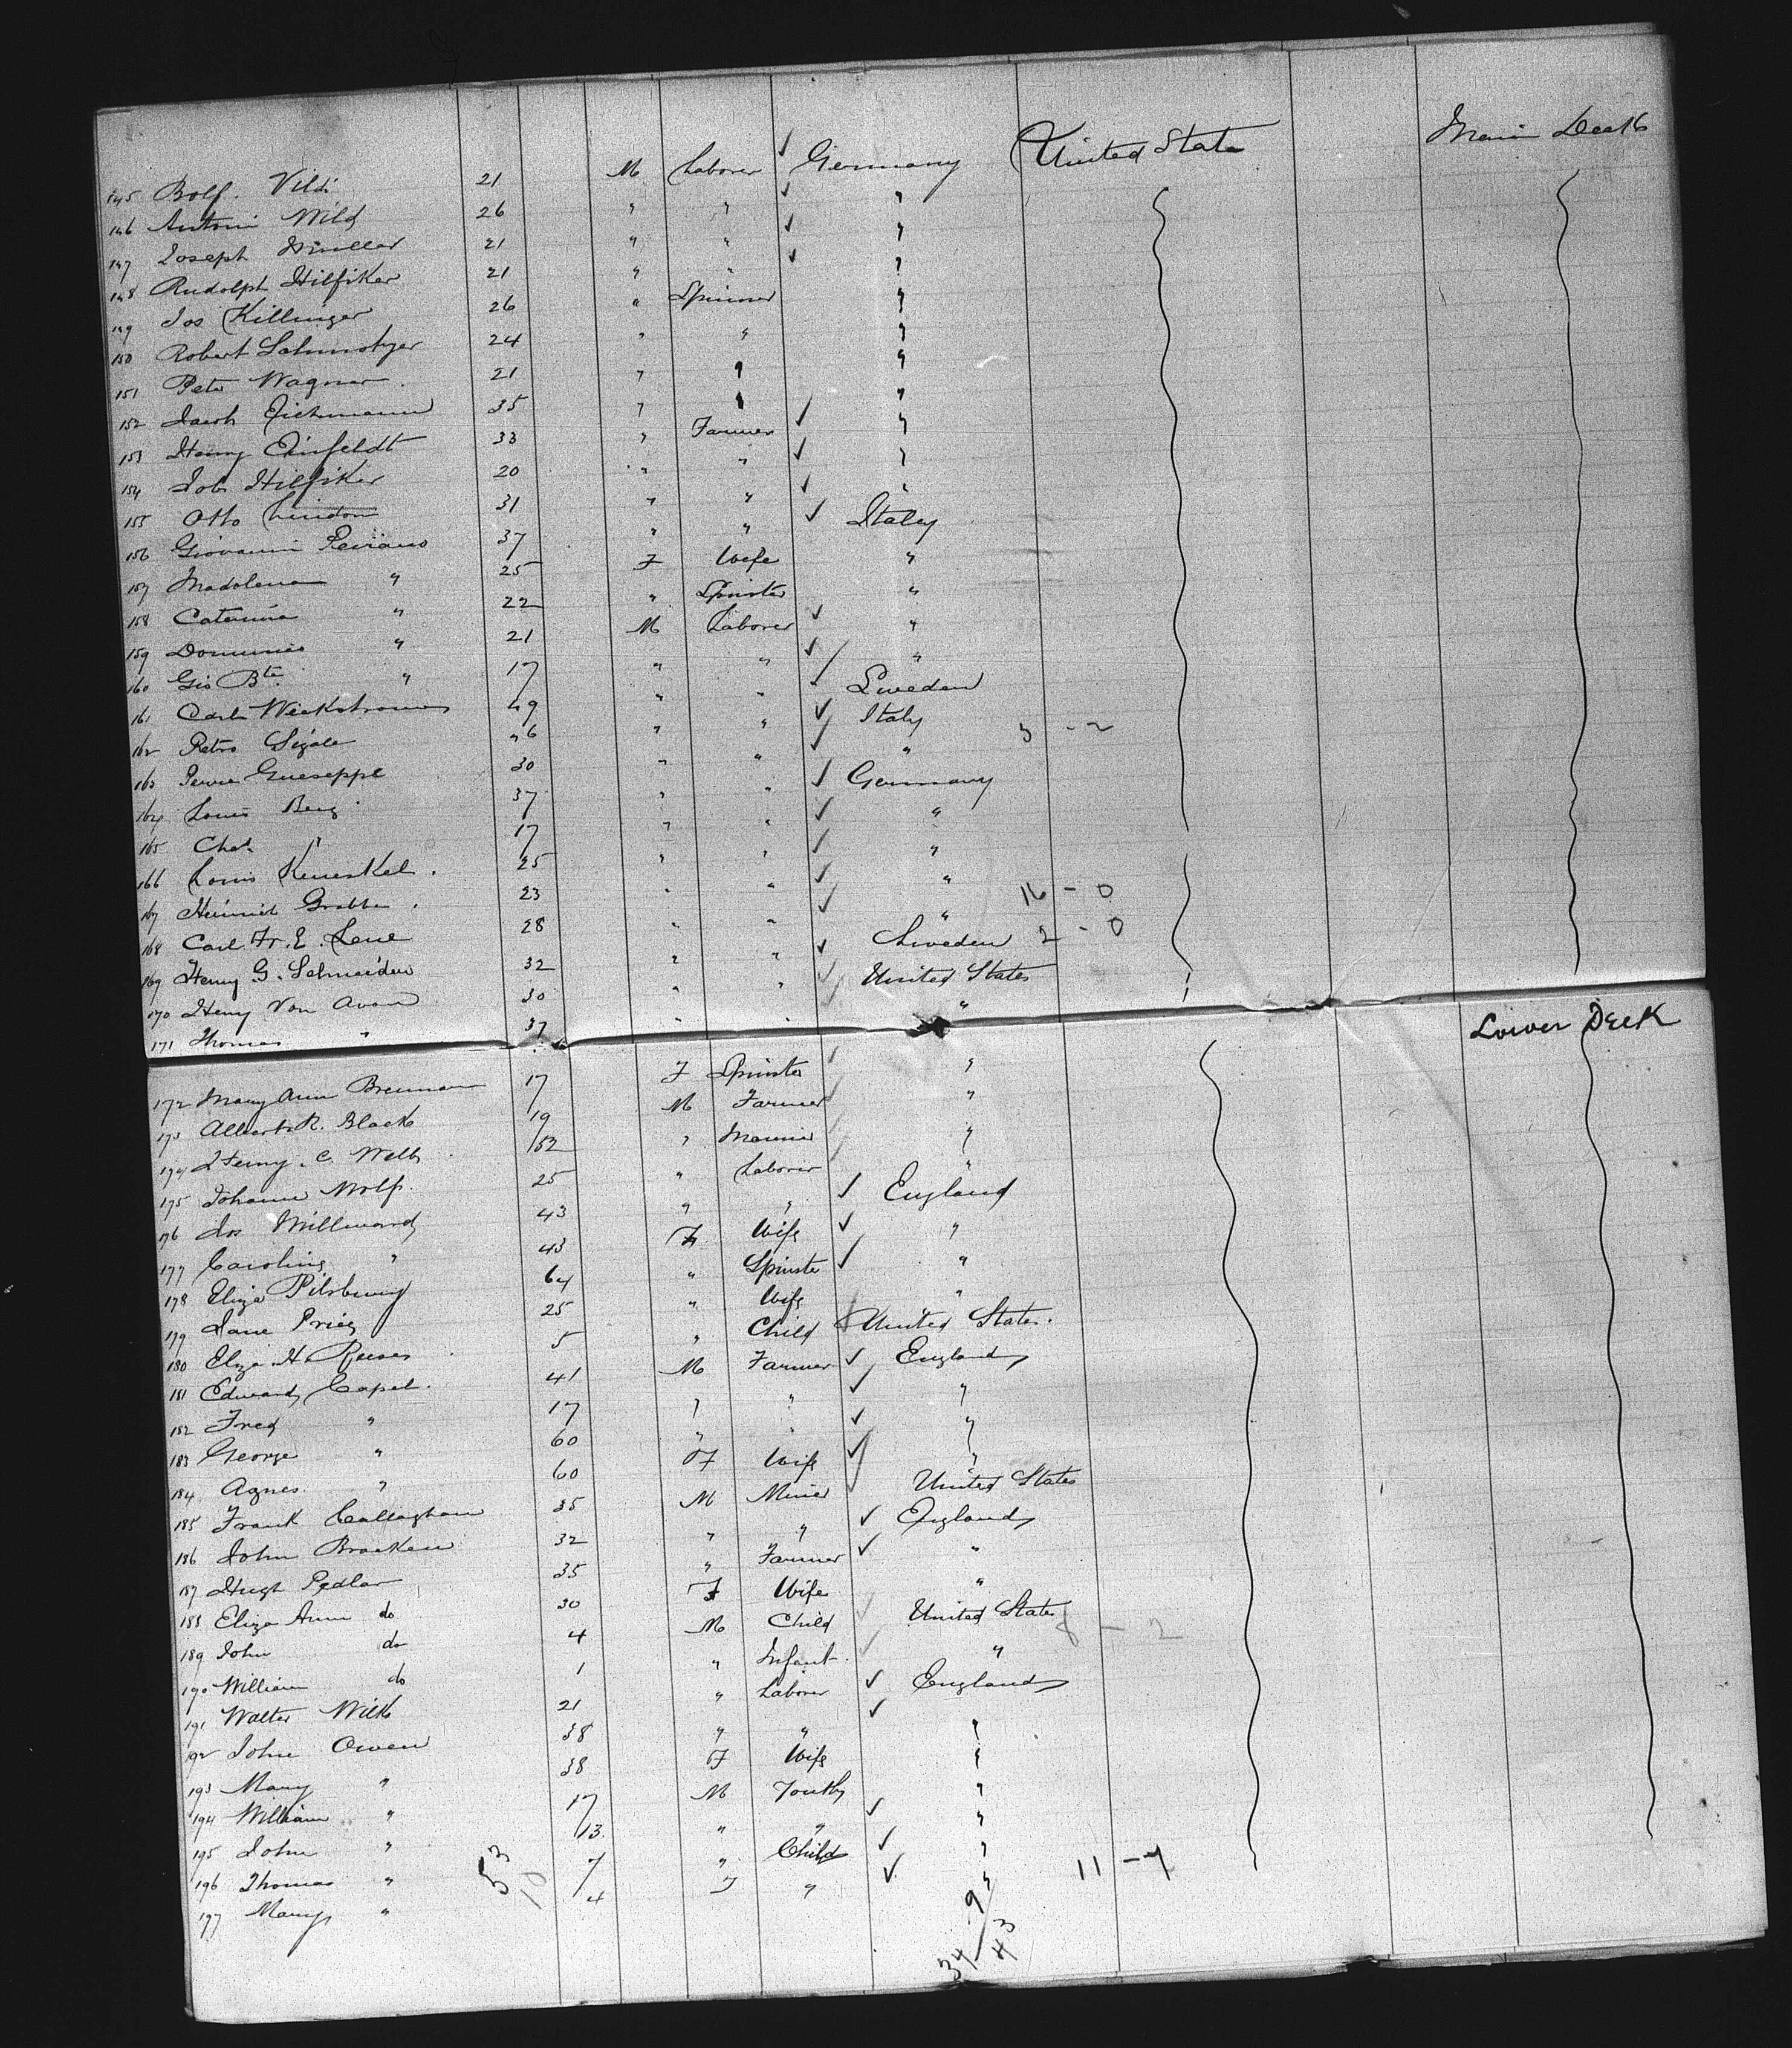 Main Deck
145 Rolf. Vildi 21 M Laborer ✓ Germany United State
146 Antoni Wild 26 " " ✓ "
147 Joseph Muller 21 " " ✓ "
148 Rudolph Hilfiker 21 " " ✓ "
149 Jos Killinger 26 " Spinner "
150 Robert 24 " " "
151 Peter Wagner. 21 " " "
152 Jacob Eichmann 35 " " "
153 Henry Einfeldt 33 " Farmer ✓ "
154 Job Hilfiker 20 " " ✓ "
155 Otto Lindom 31 " " ✓ "
156 Giovanni 37 " " ✓ Italy
157 Madalena " 25 F Wife "
158 Caterina " 22 " Spinster "
159 Dominico " 21 M Laborer ✓ "
160 Gio Bte. " 17 " " ✓ "
161 Carl 49 " " ✓ Sweden
162 Petro Sigale 26 " " ✓ Italy 3 - 2
163 Gueseppe 30 " " ✓ "
164 Louis Berg. 37 " " ✓ Germany
165 Chas. " 17 " " ✓ "
166 Louis 25 " " ✓ "
167 Heinrich Grabben. 23 " " ✓ "
168 Carl Fr. E. Lene 28 " " ✓ " 16 - 0
169 Henry G. Schneider 32 " " ✓ Sweden 2 - 0
170 Henry Von Avon 30 " " ✓ United States
171 Thomas " 37 " " ✓ "
Lower Deck
172 Mary Ann Brennan 17 F Spinster ✓ "
173 Albert R. Black 19 M Farmer ✓ "
174 Henry. C. Wells 52 " ✓ "
175 Johann Wolf. 25 " Laborer "
176 Jos Millward 43 " " ✓ England
177 Caroline " 43 F Wife ✓ "
178 Eliza Pilsbury 64 " Spinster ✓ "
179 Jane Price 25 " Wife "
180 Eliza H. Reeves 5 " Child ✓ United States.
181 Edward Capel. 41 M Farmer ✓ England
182 Fred " 17 " " ✓ "
183 George " 60 " " ✓ "
184 Agnes " 60 F Wife ✓ "
185 Frank Callaghan 35 M Miner ✓ United States
186 John Bracken 32 " " ✓ England
187 Hugh Pedlar 35 " Farmer ✓ "
188 Eliza Ann do 30 F Wife "
189 John do 4 M Child ✓ United States 8 - 2
190 William do 1 " Infant. ✓ "
191 Walter Wilk 21 " Laborer ✓ England
192 John Owen 38 " " ✓ "
193 Mary " 38 F Wife "
194 William " 17 M Youth "
195 John " 13. " " ✓ "
196 Thomas " 7 " Child ✓ "
197 Mary " 4 F " ✓ " 11 - 7
53
10
9
34
43